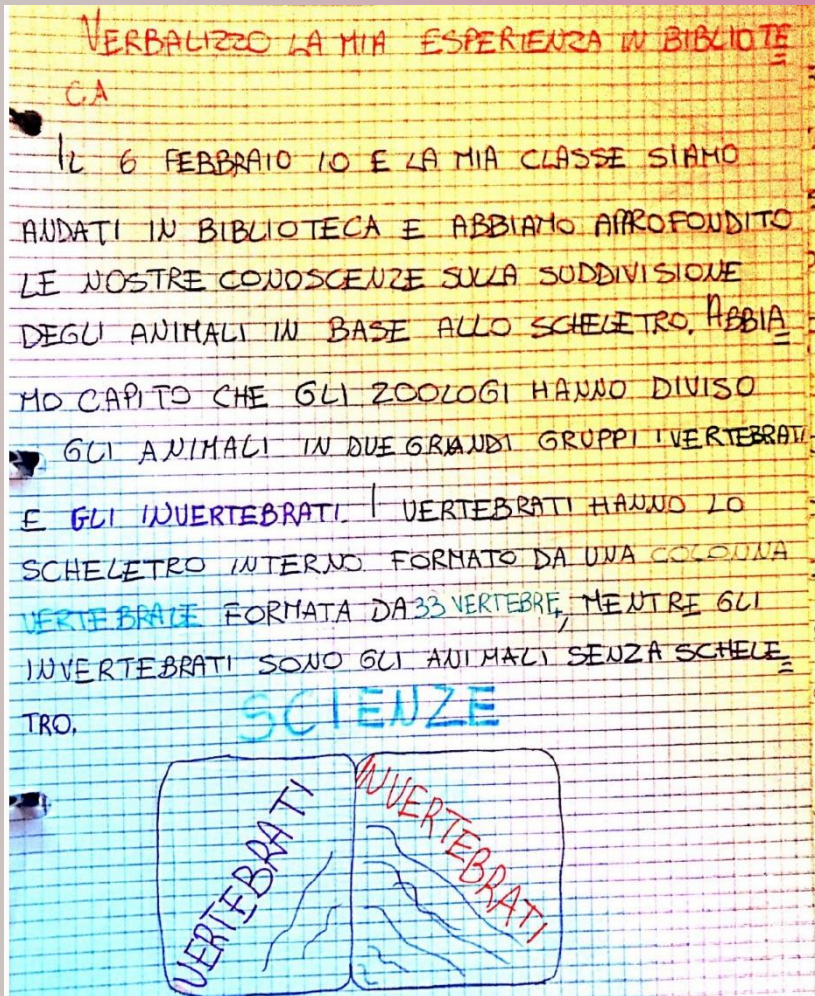 VERBALIZZO LA MIA ESPERIENZA IN BIBLIOTE=
CA
IL 6 FEBBRAIO IO E LA MIA CLASSE SIAMO
ANDATI IN BIBLIOTECA E ABBIAMO APPROFONDITO
LE NOSTRE CONOSCENZE SULLA SUDDIVISIONE
DEGLI ANIMALI IN BASE ALLO SCHELETRO. ABBIA=
MO CAPITO CHE GLI ZOOLOGI HANNO DIVISO
GLI ANIMALI IN DUE GRANDI GRUPPI I VERTEBRATI
E GLI INVERTEBRATI. I VERTEBRATI HANNO LO
SCHELETRO INTERNO FORMATO DA UNA COLONNA
VERTEBRALE FORMATA DA 33 VERTEBRE, MENTRE GLI
INVERTEBRATI SONO GLI ANIMALI SENZA SCHELE=
TRO.
SCIENZE
VERTEBRATI
INVERTEBRATI